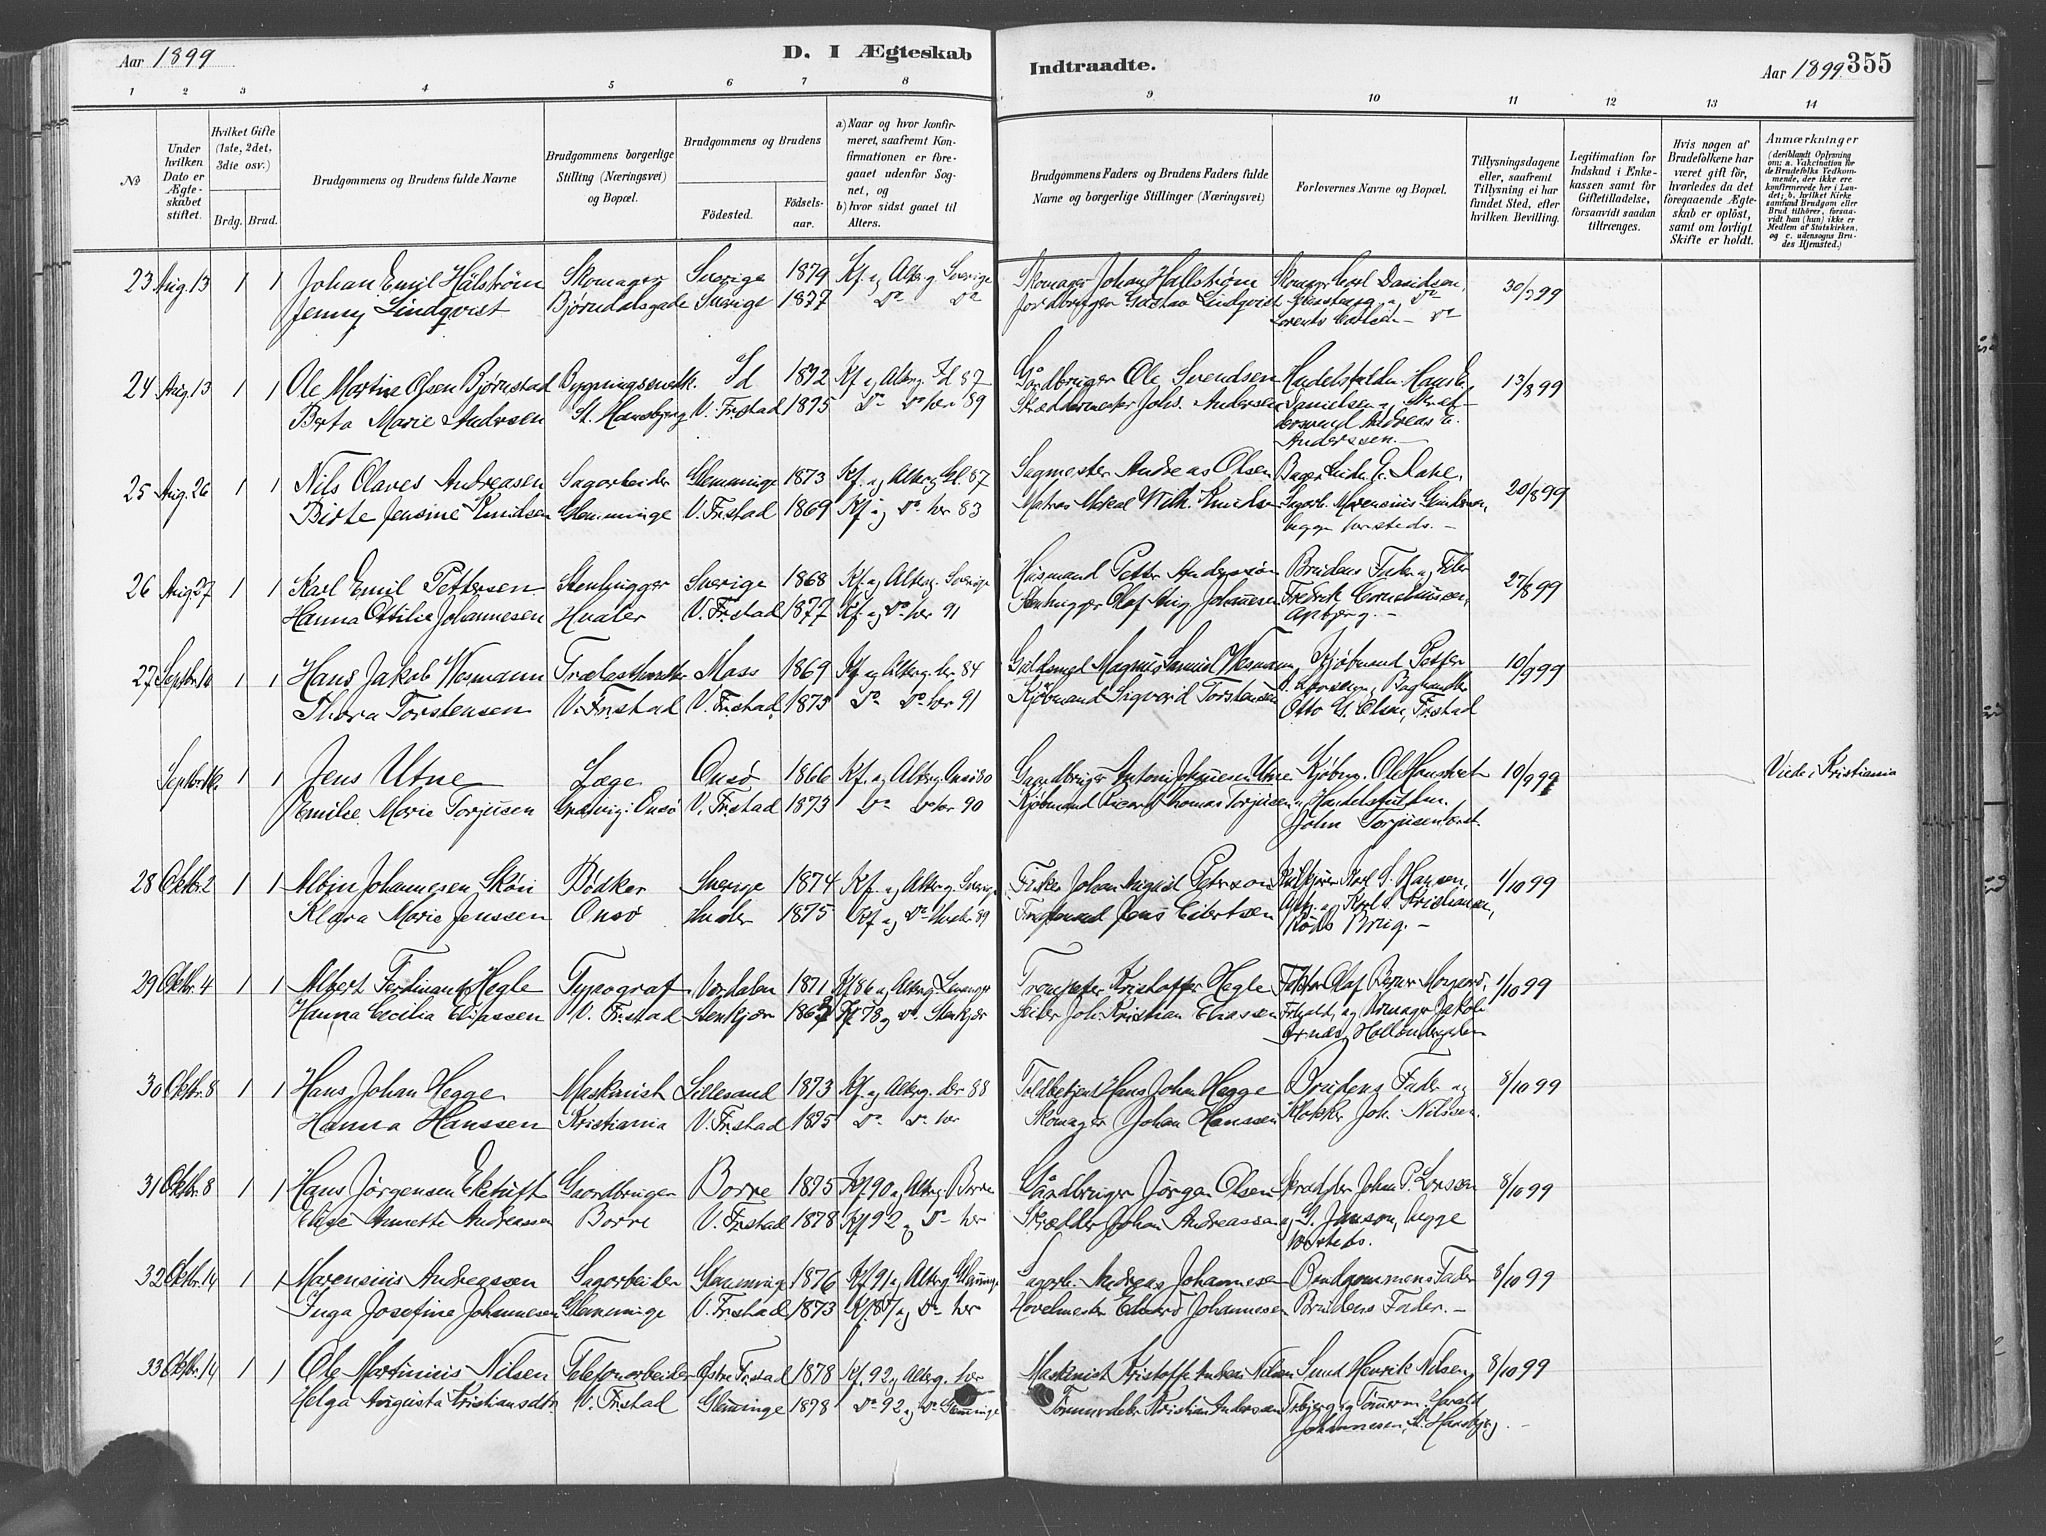 Aar 1899
D. I Ægteskab
Indtraadte.
Aar 1899
355
1 2 3 4 5 6 7 8 9 10 11 12 13 14
No
Under hvilken Dato er Ægteskabet stiftet.
Hvilket Gifte (1ste, 2det, 3die osv.)
Brdg. Brud.
Brudgommens og Brudens fulde Navne
Brudgommens borgerlige Stilling (Næringsvei) og Bopæl.
Brudgommens og Brudens
Födested.
Födsels-aar.
a) Naar og hvor konfirmeret, saafremt Konfirmationen er foregaaet udenfor Sognet, og
b) hvor sidst gaaet til Alters.
Brudgommens Faders og Brudens Faders fulde Navne og borgerlige Stillinger (Næringsvei)
Forlovernes Navne og Bopæl.
Tillysningsdagene eller, saafremt Tillysning ei har fundet Sted, efter hvilken Bevilling.
Legitimation for Indskud i Enkekassen samt for Giftetilladelse, forsaavidt saadan tiltrænges.
Hvis nogen af Brudefolkene har været gift för, hvorledes da det foregaaende Ægteskab er oplöst, samt om lovligt Skifte er holdt.
Anmærkninger
(deriblandt Oplysning om: a. Vakcination for de Brudefolks Vedkommende, der ikke ere konfirmerede her i Landet; b. hvilket Kirkesamfund Brudgom eller Brud tilhörer, forsaavidt han (hun) ikke er Medlem af Statskirken, og c. udensogns Brudes Hjemsted.)
23 Aug. 13 1 1 Johan Emil Hälström Skomager Sverige 1879 Kf. og Alterg. Sverige Skomager Johan Hallstrøm Carl Davidsen,
Jenny Lindqvist Bjørndalsgade Sverige 1877 Do Do Jordbruger Gustav Lindqvist
24 Aug. 13 1 1 Ole Martin Olsen Bjørnstad Id 1872 Kf. og Alterg. Id 87 Gårdbruger Ole Svendsen 13/8 99
Berta Marie Andersen St. Hansbjerg V. Fr.stad 1875 Do Do her 89 Skræddermester Johs. Andersen Danielsen og
Andreas E.
Anderssen. —
25 Aug. 26 1 1 Nils Olaves Andreasen Sagarbeider Glemminge 1873 Kf. og Alterg. Gl. 87 Sagmester Andreas Olsen Bager 20/8 99
Birte Jensine Knudsen Glemminge V. Fr.stad 1869 Kf. og Do her 83 Matros Mikal Vilh. Knudsen Sagarb. Marensius
begge
26 Aug. 27 1 1 Karl Emil Pettersen Stenhugger Sverige 1868 Kf. og Alterg. Sverige Husmand Petter Andersson Brudens Fader og 27/8 99
Hanna Ottilie Johannesen Hvaler V. Fr.stad 1877 Kf. og Do her 91 Stenhugger Olaf Aug. Johannesen Fredrik Corneliussen,
27 Septbr. 10 1 1 Hans Jakob Wesmann Moss 1869 Kf. og Alterg. der 84 Guldsmed Magnus Samuel Wesmann Kjøbmand Petter 10/9 99
Thora Torstensen V. Fr.stad V. Fr.stad 1875 Do Do her 91 Kjøbmand Sigvard Torstensen
Otto G. Olsen, Fr.stad
Septbr. 1 1 Jens Utne Læge Onsö 1866 Kf. og Alterg. Onsö 80 Gaardbruger Antoni Johannesen Utne Kjøbm. Ole 10/9 99 Viede i Kristiania
Emilie Marie Torjusen Onsö V. Fr.stad 1873 Do Do her 90 Kjøbmand Thomas Torjusen
John Torjusen
28 Oktbr. 2 1 1 Albin Johannesen Sköri Bødker Sverige 1874 Kf. og Alterg. Sverige Fisker Johan August Petersson Karl S. Hansen, 1/10 99
Klara Marie Jenssen Onsö Hvaler 1875 Kf. og Do Hvaler 89 Jens Eilertsen Karl A. Kristiansen,
Brug. —
29 Oktbr. 4 1 1 Albert Ferdinand Hegle Typograf Værdalen 1871 Kf. 86 og Alterg. Levanger Trompeter Kristoffer Hegle Faktor Olaf 1/10 99
Hanna Cecilia Eliassen V. Fr.stad Stenkjær Kf. 78 og Do Stenkjær Joh. Kristian Eliassen Jakob
30 Oktbr. 8 1 1 Hans Johan Hegge Maskinist Lillesand 1873 Kf. og Alterg. der 88 Toldbetjent Hans Johan Hegge Brudens Fader og 8/10 99
Hanna Hanssen Kristiania V. Fr.stad 1875 Do Do her Skomager Johan Hanssen Klokker Joh. Nilssen.
31 Oktbr. 8 1 1 Hans Jörgensen Eketuft Gaardbruger Borre 1875 Kf. 90 og Alterg. Borre Gårdbruger Jørgen Olsen Johan P. 8/10 99
Elise Annette Andreassen Borre V. Fr.stad 1878 Kf. 92 og Do her Skrædder Johan Andreassen og G. Janson, begge
32 Oktbr. 14 1 1 Marensius Andreassen Sagarbeider Glemminge 1876 Kf. 91 og Alterg. Glemminge Sagarb. Andreas Johannesen Brudgommens Fader 8/10 99
Inga Josefine Johannesen Glemminge V. Fr.stad 1873 Kf. 87 og Do her Høvelmester Edvard Johannessen Brudens Fader. —
33 Oktbr. 14 1 1 Ole Martinius Nilsen Telefonarbeider Østre Fr.stad 1878 Kf. 92 og Alterg. her Maskinist Kristoffer Nilsen Henrik Nilsen, 8/10 99
Helga Augusta Kristiansdtr. V. Fr.stad Glemminge 1878 Do 92 og Do Glemminge Kristian Andersen og Tömmerm. Harald
Johannesen, St. Hansbjerg. —